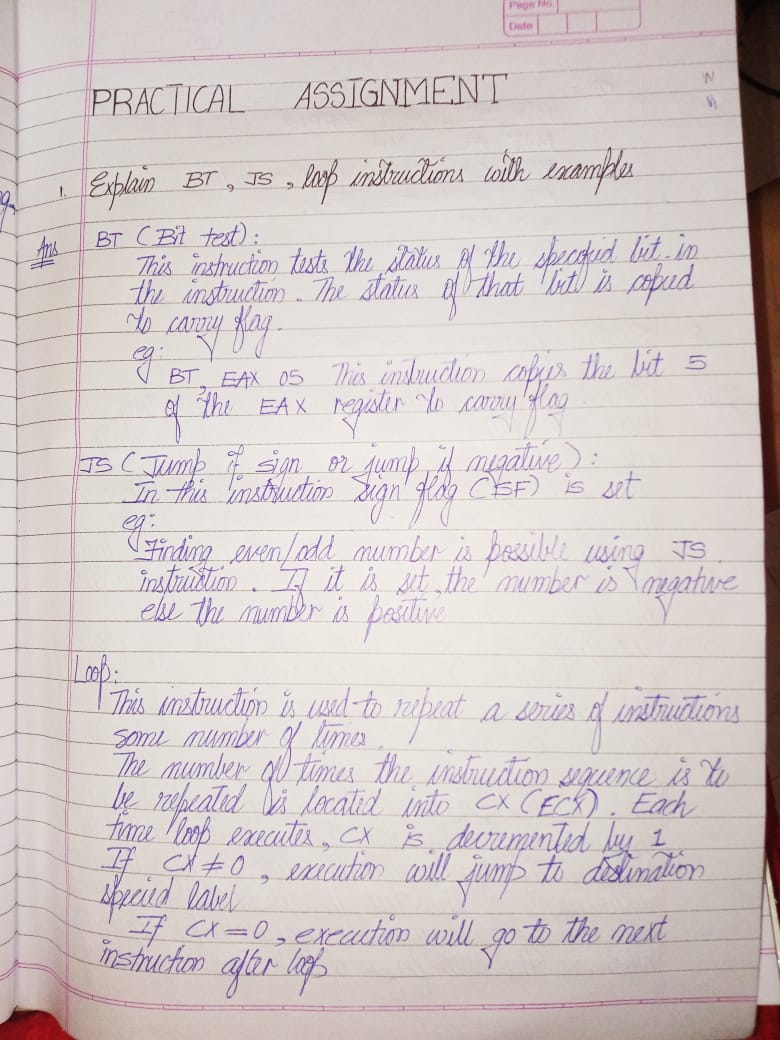 Page No.
Date
PRACTICAL ASSIGNMENT
1. Explain BT, JS, loop instructions with examples
Ans BT (Bit test):
This instruction tests the status of the specified bit in
the instruction. The status of that bit is copied
to carry flag.
eg:
BT, EAX 05 This instruction copies the bit 5
of the EAX register to carry flag
JS (Jump if sign or jump if negative):
In this instruction sign flag (SF) is set
eg:
Finding even/odd number is possible using JS
instruction. If it is set, the number is negative
else the number is positive
Loop:
This instruction is used to repeat a series of instructions
some number of times.
The number of times the instruction sequence is to
be repeated is located into CX (ECX). Each
time loop executes, CX is decremented by 1
If CX ≠ 0, execution will jump to destination
specied label
If CX = 0, execution will go to the next
instruction after loop